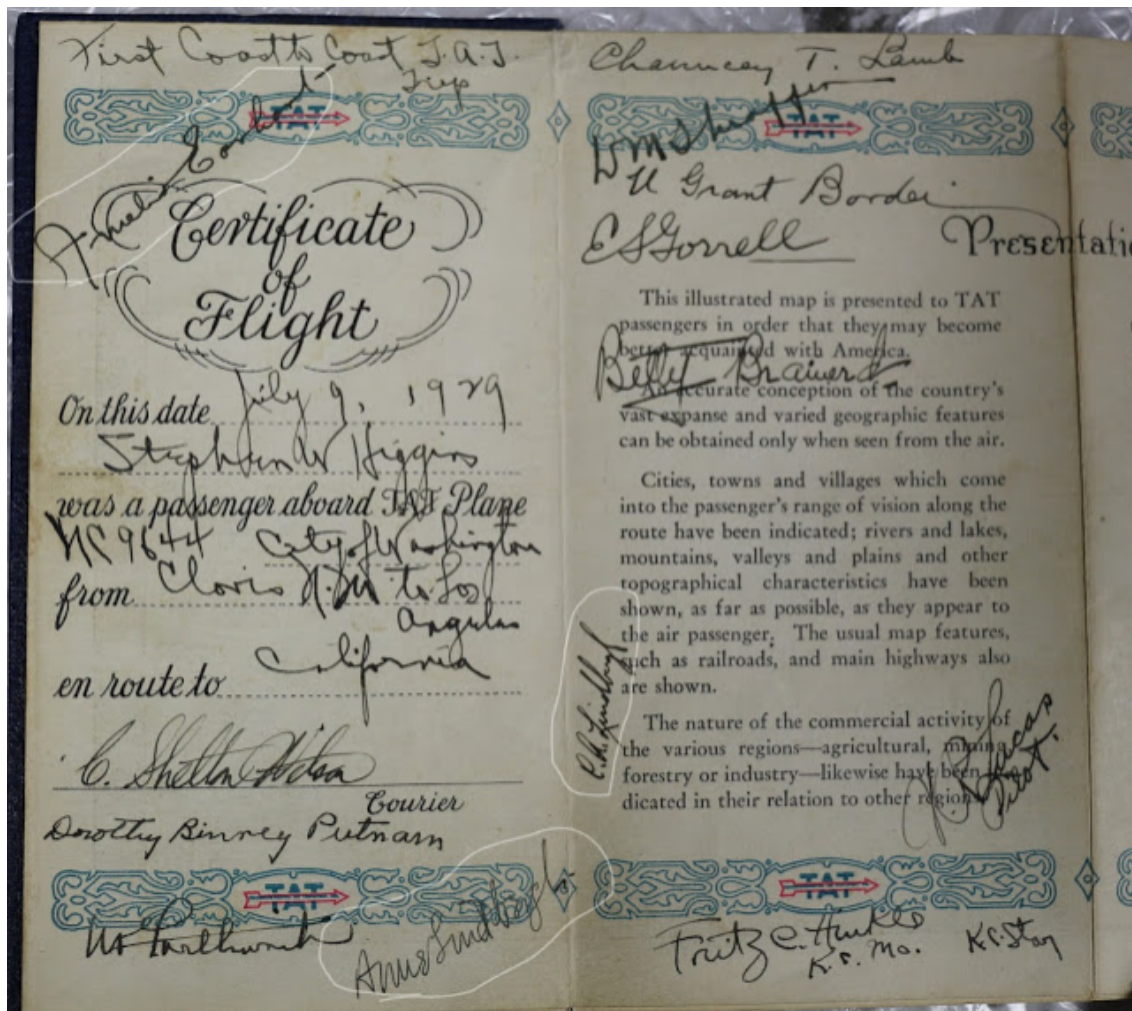 First Coast to Coast T.A.T.
Trip
TAT
Amelia Earhart
Certificate
of
Flight
On this date July 9, 1929
Stephen W Higgins
was a passenger aboard TAT Plane
NC 9644 City of Washington
from Clovis N.M to Los
Angeles
en route to California
C. Shelton
Courier
Dorothy Binney Putnam
TAT
Anne Lindbergh
Chauncey T. Lamb
TAT
Wm Shaffer
U Grant Border
E S Gorrell
Presentatio
This illustrated map is presented to TAT
passengers in order that they may become
better acquainted with America.
Betty Brainerd
An accurate conception of the country's
vast expanse and varied geographic features
can be obtained only when seen from the air.
Cities, towns and villages which come
into the passenger's range of vision along the
route have been indicated; rivers and lakes,
mountains, valleys and plains and other
topographical characteristics have been
shown, as far as possible, as they appear to
the air passenger. The usual map features,
such as railroads, and main highways also
are shown.
C.A. Lindbergh
The nature of the commercial activity of
the various regions—agricultural, mining,
forestry or industry—likewise have been in-
dicated in their relation to other regions.
Lucas
Pilot.
TAT
Fritz C. Hinkle
K.C. Mo. K.C. Star